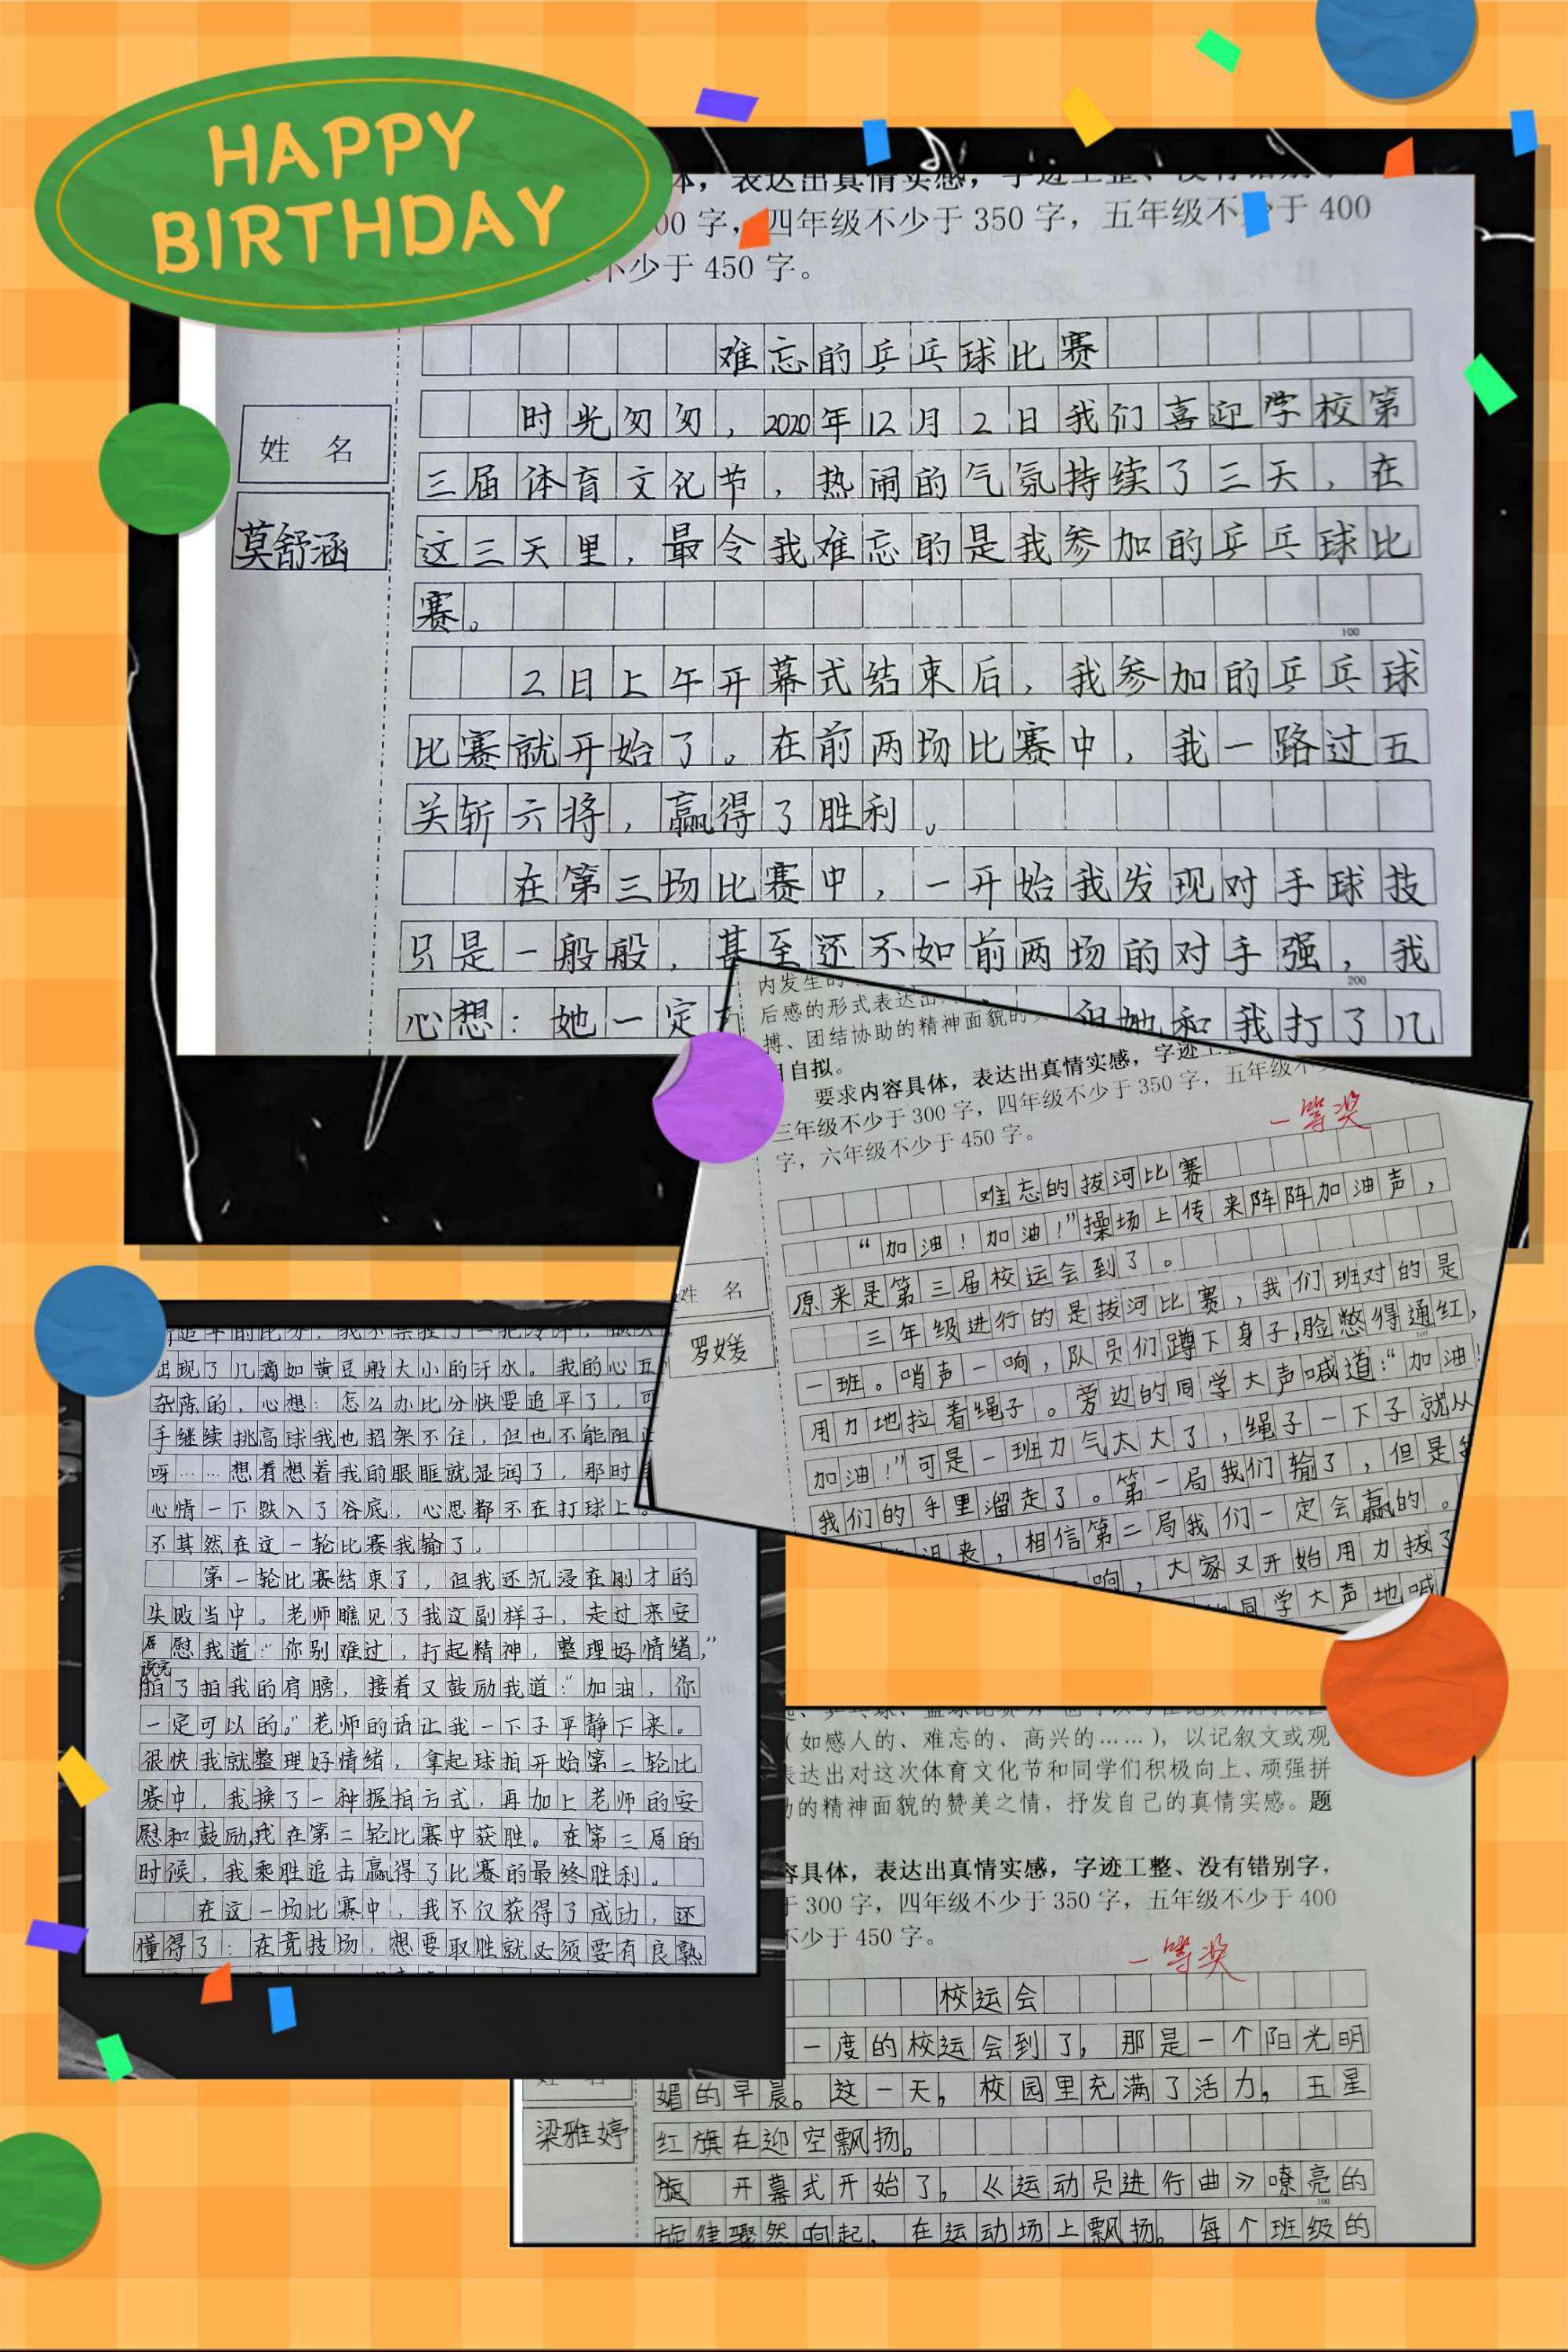 HAPPY
BIRTHDAY
本，表达出真情实感，字迹工整、没有错别
00 字，四年级不少于 350 字，五年级不少于 400
不少于 450 字。
难忘的乒乓球比赛
时光匆匆，2020年12月2日我们喜迎学校第
三届体育文化节，热闹的气氛持续了三天，在
姓 名
莫舒涵
这三天里，最令我难忘的是我参加的乒乓球比
赛。
100
2日上午开幕式结束后，我参加的乒乓球
比赛就开始了。在前两场比赛中，我一路过五
关斩六将，赢得了胜利。
在第三场比赛中，一开始我发现对手球技
只是一般般，甚至还不如前两场的对手强，我
200
心想：她一定
但她和我打了几
内发生的
后感的形式表达出
搏、团结协助的精神面貌的
目自拟。
要求内容具体，表达出真情实感，字迹工
三年级不少于 300 字，四年级不少于 350 字，五年级不
字，六年级不少于 450 字。
一等奖
难忘的拔河比赛
“加油！加油！”操场上传来阵阵加油声，
原来是第三届校运会到了。
姓 名
罗媛
三年级进行的是拔河比赛，我们班对的是
一班。哨声一响，队员们蹲下身子，脸憋得通红，
100
用力地拉着绳子。旁边的同学大声喊道：“加油！
加油！”可是一班力气太大了，绳子一下子就从
我们的手里溜走了。第一局我们输了，但是
，相信第二局我们一定会赢的。
响，大家又开始用力拔了
同学大声地喊
出现了几滴如黄豆般大小的汗水。我的心五
杂陈的，心想：怎么办比分快要追平了，可
手继续挑高球我也招架不住，但也不能阻
呀……想着想着我的眼眶就湿润了，那时
心情一下跌入了谷底，心思都不在打球上。
不其然在这一轮比赛我输了。
第一轮比赛结束了，但我还沉浸在刚才的
失败当中。老师瞧见了我这副样子，走过来安
慰我道：“你别难过，打起精神，整理好情绪，”
说完
拍了拍我的肩膀，接着又鼓励我道：“加油，你
一定可以的。”老师的话让我一下子平静下来。
很快我就整理好情绪，拿起球拍开始第二轮比
赛中，我换了一种握拍方式，再加上老师的安
慰和鼓励，我在第二轮比赛中获胜。在第三局的
时候，我乘胜追击赢得了比赛的最终胜利。
在这一场比赛中，我不仅获得了成功，还
懂得了：在竞技场，想要取胜就必须要有良熟
（如感人的、难忘的、高兴的……），以记叙文或观
表达出对这次体育文化节和同学们积极向上、顽强拼
的精神面貌的赞美之情，抒发自己的真情实感。题
容具体，表达出真情实感，字迹工整、没有错别字，
于 300 字，四年级不少于 350 字，五年级不少于 400
不少于 450 字。
一等奖
校运会
一度的校运会到了，那是一个阳光明
媚的早晨。这一天，校园里充满了活力，五星
梁雅婷
红旗在迎空飘扬。
旋 开幕式开始了，《运动员进行曲》嘹亮的
100
旋律骤然响起，在运动场上飘扬。每个班级的